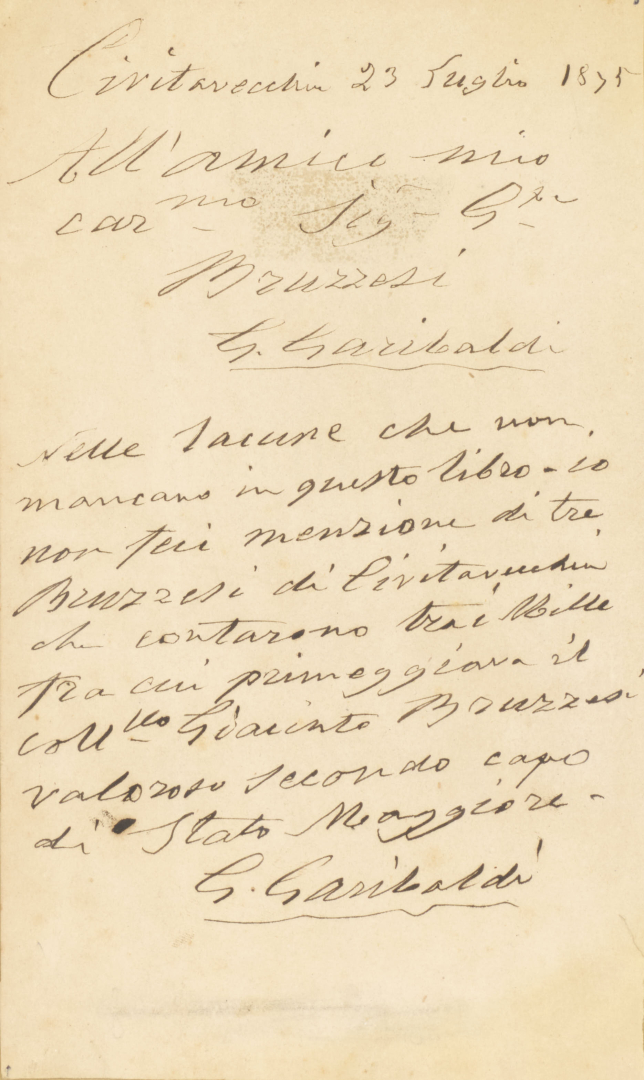 Civitavecchia 23 Luglio 1875
All'amico mio
car^mo Sig^r G^
Bruzzesi
G. Garibaldi
Nelle lacune che non
mancano in questo libro - io
non feci menzione di tre
Bruzzesi di Civitavecchia
che contarono tra i Mille
tra cui primeggiava il
coll^llo Giacinto Bruzzesi
valoroso secondo capo
di Stato Maggiore -
G. Garibaldi